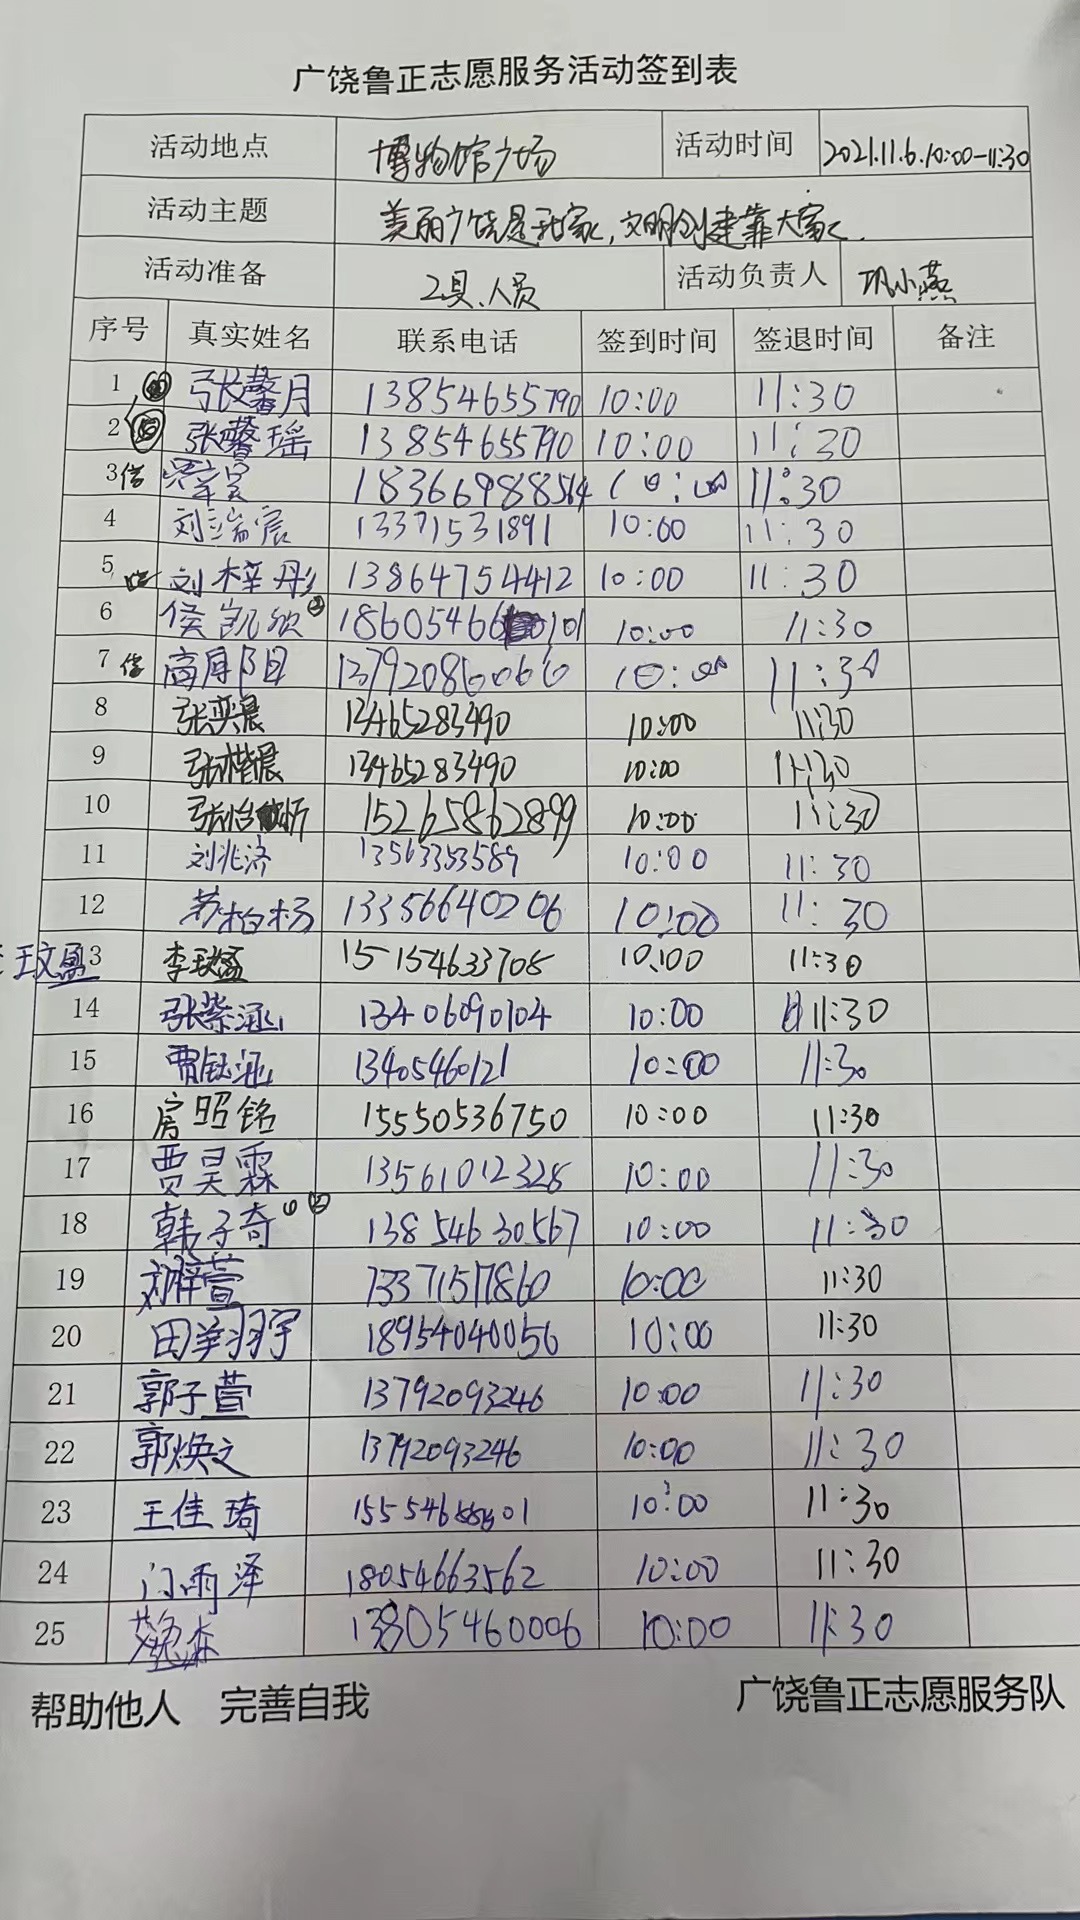 广饶鲁正志愿服务活动签到表
活动地点 博物馆广场 活动时间 2021.11.6.10:00-11:30
活动主题 美丽广饶是我家,文明创建靠大家.
活动准备 工具、人员 活动负责人 巩小燕
序号 真实姓名 联系电话 签到时间 签退时间 备注
1 张馨月 13854655790 10:00 11:30
2 张馨瑶 13854655790 10:00 11:30
3 信 18366988564 10:00 11:30
4 刘端宸 13371531891 10:00 11:30
5 刘梓彤 13864754412 10:00 11:30
6 侯凯欣② 18605466101 10:00 11:30
7 信 高厚阳 13792086066 10:00 11:30
8 张奕晨 13465283490 10:00 11:30
9 张楷晨 13465283490 10:00 11:30
10 张怡昕 15265862899 10:00 11:30
11 刘兆济 13563353589 10:00 11:30
12 苏柏杨 13356640206 10:00 11:30
王文盈 13 李 15154633708 10:00 11:30
14 张紫涵 13406090104 10:00 11:30
15 贾钰涵 13405460121 10:00 11:30
16 房照铭 15550536750 10:00 11:30
17 贾昊霖 13561012328 10:00 11:30
18 韩子奇 13854630567 10:00 11:30
19 刘梓萱 13371517860 10:00 11:30
20 田羊羽宇 18954040056 10:00 11:30
21 郭子萱 13792093246 10:00 11:30
22 郭焕之 13792093246 10:00 11:30
23 王佳琦 10:00 11:30
24 门雨泽 18054663562 10:00 11:30
25 13805460006 10:00 11:30
帮助他人 完善自我 广饶鲁正志愿服务队